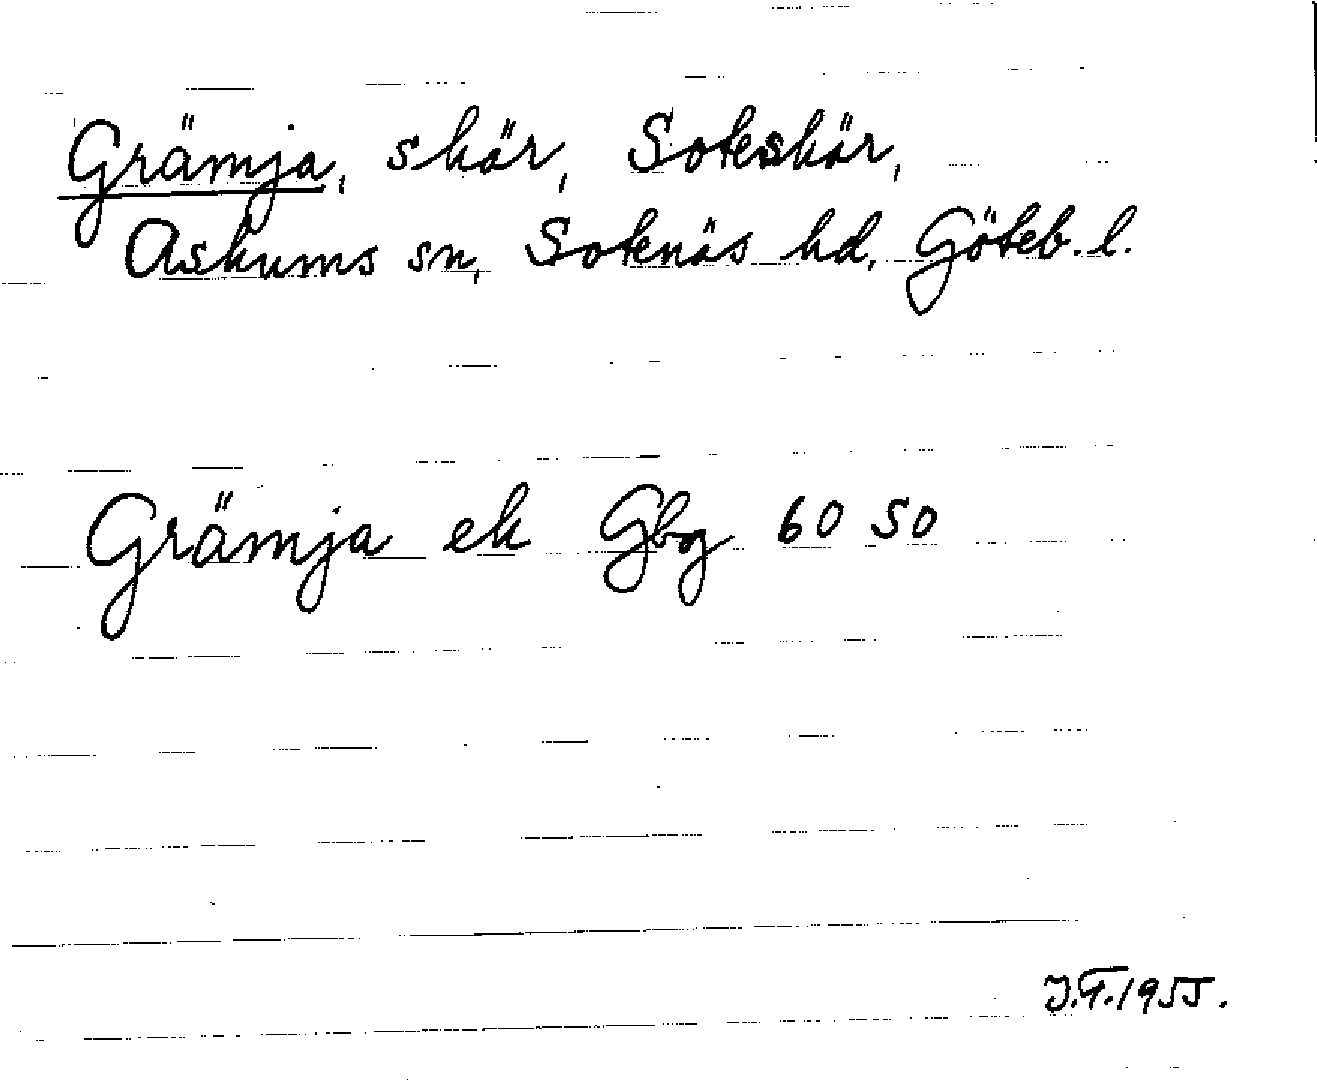 Grämja, skär, Soteskär,
Askums sn, Sotenäs hd, Göteb. l.
Grämja ek Gbg 60 50
J.T. 1955.